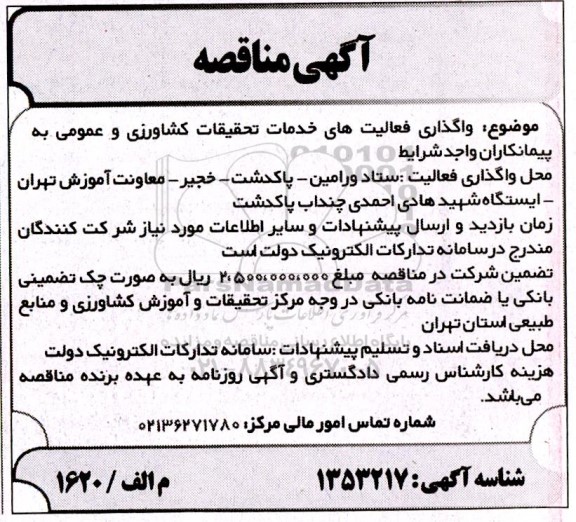 آگهی مناقصه
موضوع: واگذاری فعالیت های خدمات تحقیقات کشاورزی و عمومی به
پیمانکاران واجد شرایط
محل واگذاری فعالیت :ستاد ورامین- پاکدشت- خجیر- معاونت آموزش تهران
- ایستگاه شهید هادی احمدی چنداب پاکدشت
زمان بازدید و ارسال پیشنهادات و سایر اطلاعات مورد نیاز شرکت کنندگان
مندرج در سامانه تدارکات الکترونیک دولت است
تضمین شرکت در مناقصه مبلغ ۲،۵۰۰،۰۰۰،۰۰۰ ریال به صورت چک تضمینی
بانکی یا ضمانت نامه بانکی در وجه مرکز تحقیقات و آموزش کشاورزی و منابع
طبیعی استان تهران
محل دریافت اسناد و تسلیم پیشنهادات :سامانه تدارکات الکترونیک دولت
هزینه کارشناس رسمی دادگستری و آگهی روزنامه به عهده برنده مناقصه
می‌باشد.
شماره تماس امور مالی مرکز: ۰۲۱۳۶۲۷۱۷۸۰
شناسه آگهی: ۱۳۵۳۲۱۷
م الف / ۱۶۲۰
ParsNamadData
پایگاه اطلاع رسانی مناقصه و مزایده